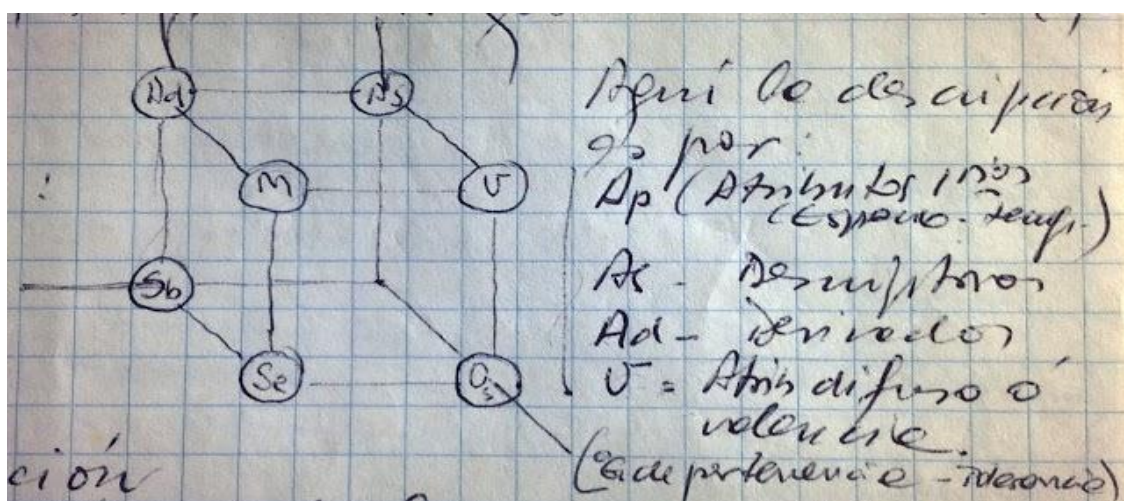 Ad As
M V
Sb
Se Os
Aquí la descripción
es por:
Ap (Atributos
(Espacio - Temp.)
As - Descriptivos
Ad - Derivados
V = Atrib difuso ó
valencia.
de pertenencia - tolerancia)
ción